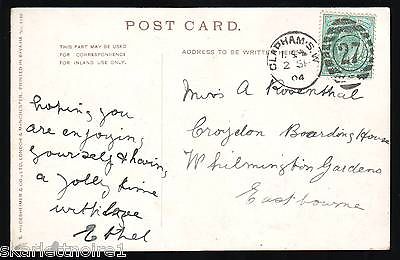 POST CARD.
THIS PART MAY BE USED
FOR CORRESPONDENCE
FOR INLAND USE ONLY.
ADDRESS TO BE WRITTEN
CLAPHAM·S.W
2 SP
04
27
hoping you
are enjoying
yourself & having
a jolly time
with love
Ethel
Miss A Rosenthal
Croydon Boarding House
Whilmington Gardens
Eastbourne
S. HILDESHEIMER & CO., LTD. LONDON & MANCHESTER. PRINTED IN
skarlettnoire1